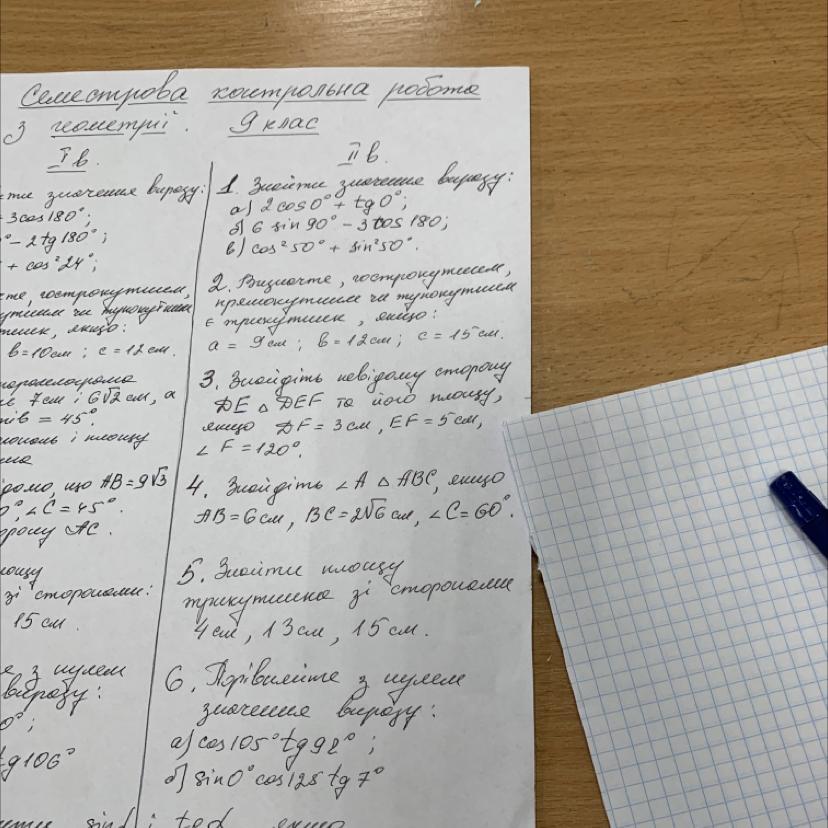 Семестрова контрольна робота
з геометрії. 9 клас
I в.
значення виразу:
3cos180°;
° - 2tg180°;
+ cos²24°;
гострокутним,
чи тупокутним
якщо:
в=10см; с=12см.
паралелограма
7см і 6√2см, а
= 45°.
і площу
що AB=9√3
∠C=45°.
AC.
зі сторонами:
15см.
з нулем
виразу:
0°;
tg106°
II в.
1. Знайти значення виразу:
а) 2cos0° + tg0°;
б) 6 sin90° - 3cos180;
в) cos²50° + sin²50°.
2. Визначте, гострокутним,
прямокутним чи тупокутним
є трикутник, якщо:
а = 9см; в=12см; с=15см.
3. Знайдіть невідому сторону
DE △ DEF та його площу,
якщо DF=3см, EF=5см,
∠F=120°.
4. Знайдіть ∠A △ ABC, якщо
AB=6см, BC=2√6см, ∠C=60°.
5. Знайти площу
трикутника зі сторонами
4см, 13см, 15см.
6. Порівняйте з нулем
значення виразу:
а) cos105°tg92°;
б) sin0°cos125tg7°